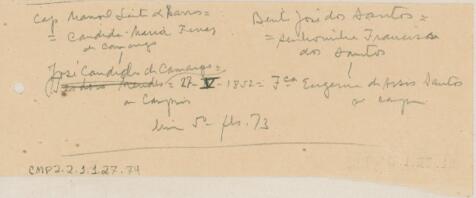 Cap Manoel Leite de Barros =
= Candida Maria Ferraz
de Camargo
Bento José dos Santos =
= Senhorinha Francisca
dos Santos
José Candido de Camargo =
Mendes = 27-V-1852 = Fca Eugenia de Assis Santos
em Campinas
em Camp
livro 5º fls. 73
CMP2.2.1.127.74